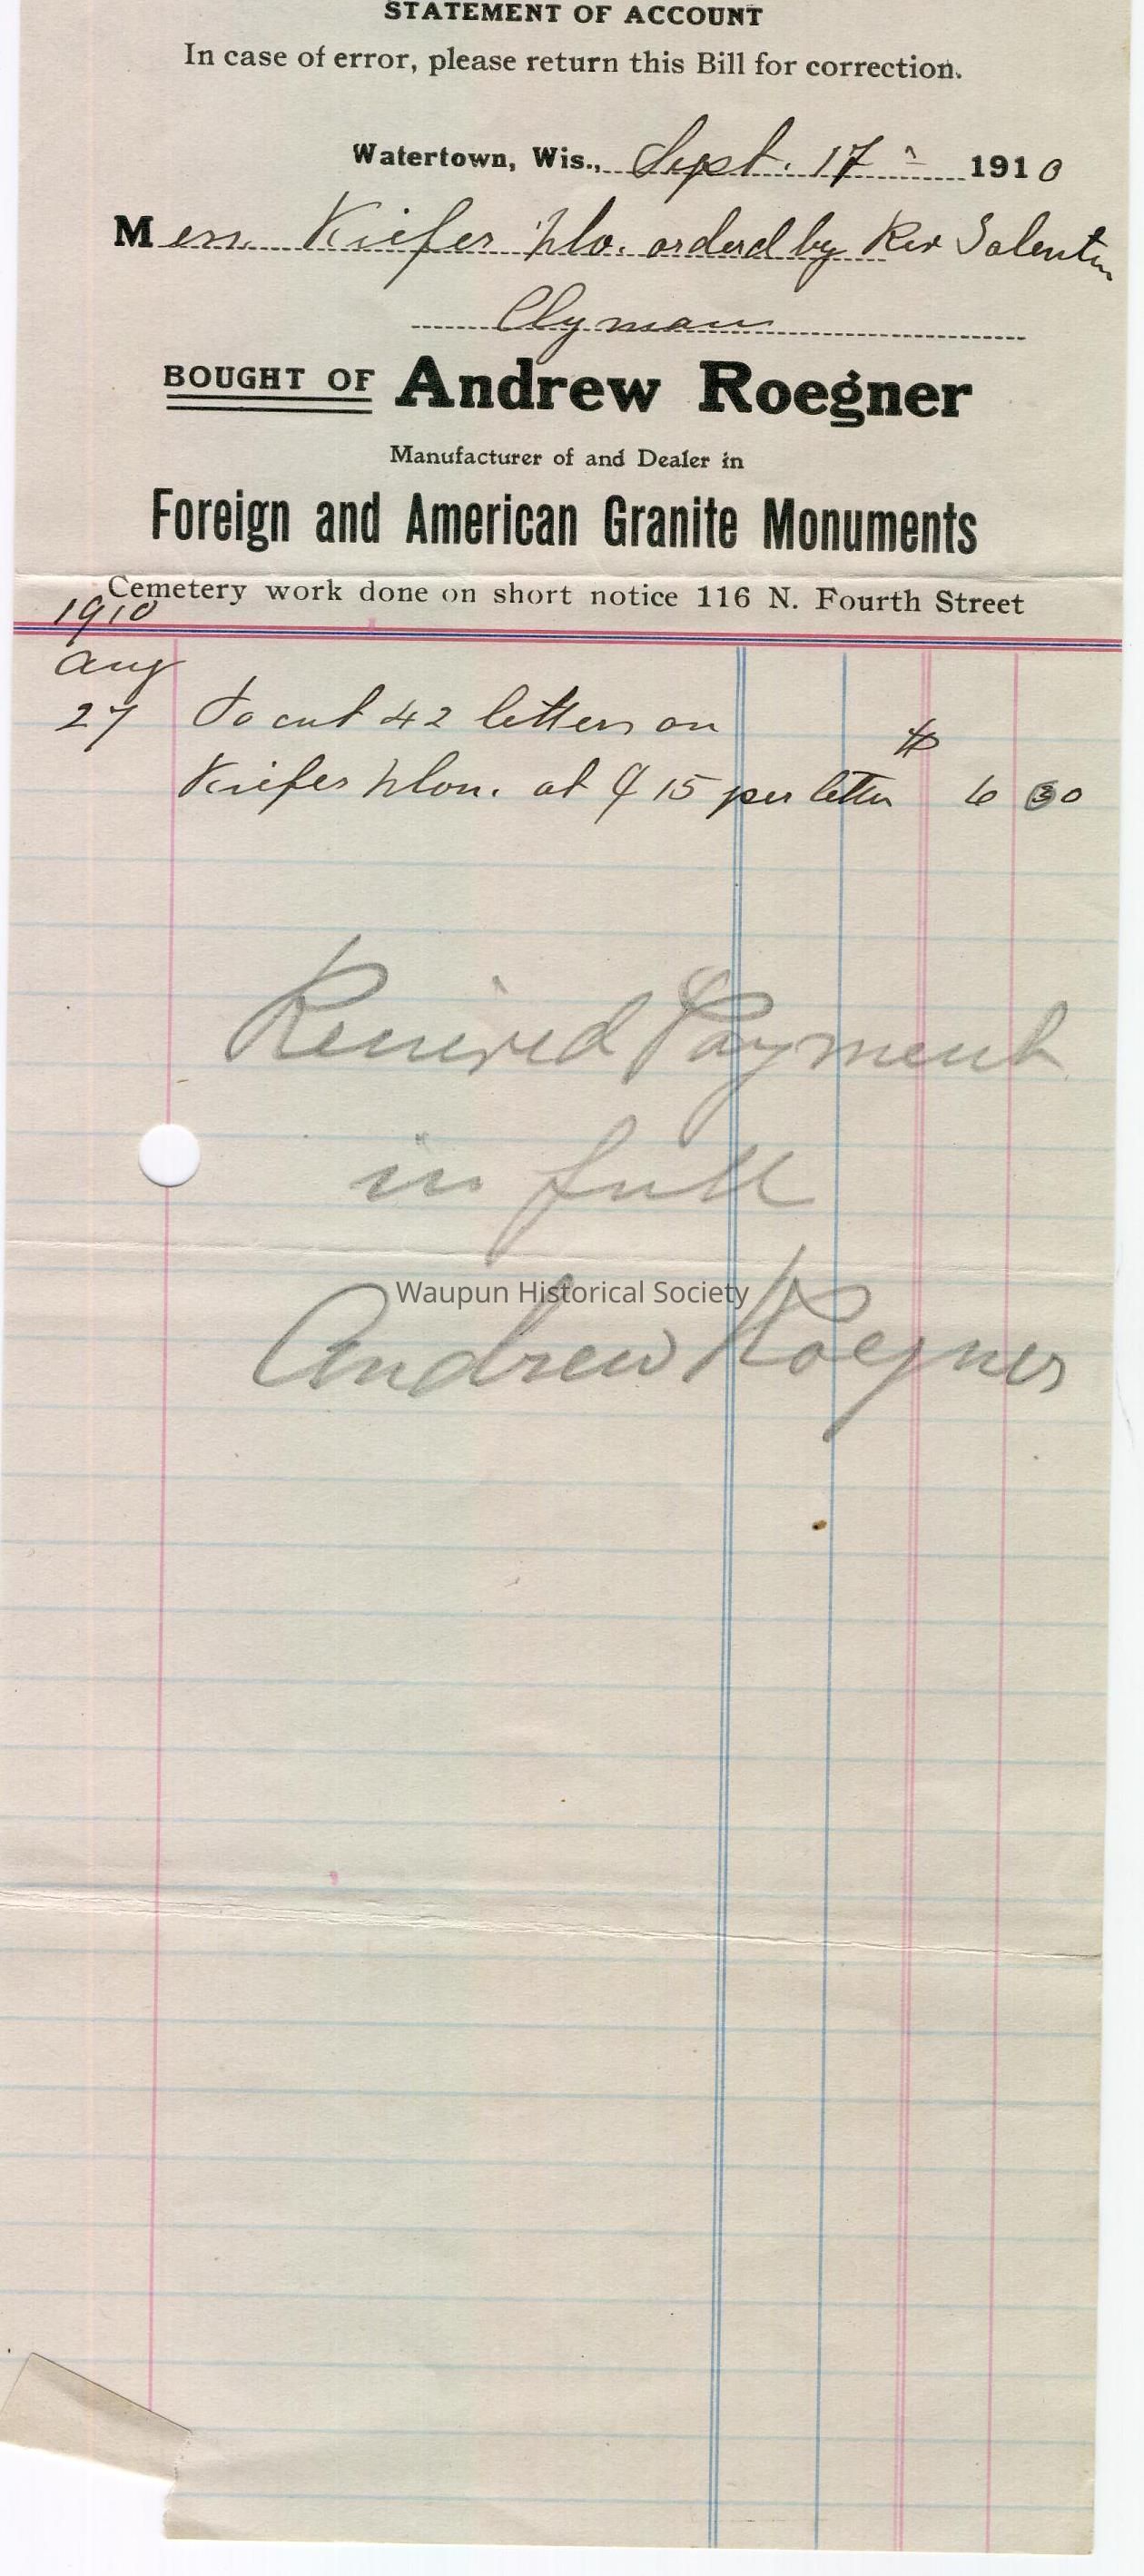 STATEMENT OF ACCOUNT
In case of error, please return this Bill for correction.
Watertown, Wis., Sept. 17 1910
M Kiefer Mo. orderd by Rev Salentin
Clyman
BOUGHT OF Andrew Roegner
Manufacturer of and Dealer in
Foreign and American Granite Monuments
Cemetery work done on short notice 116 N. Fourth Street
1910
Aug
27 To cut 42 letters on
Kiefer Mon. at ¢ 15 per letter $ 6 30
Received Payment
in full
Waupun Historical Society
Andrew Roegner